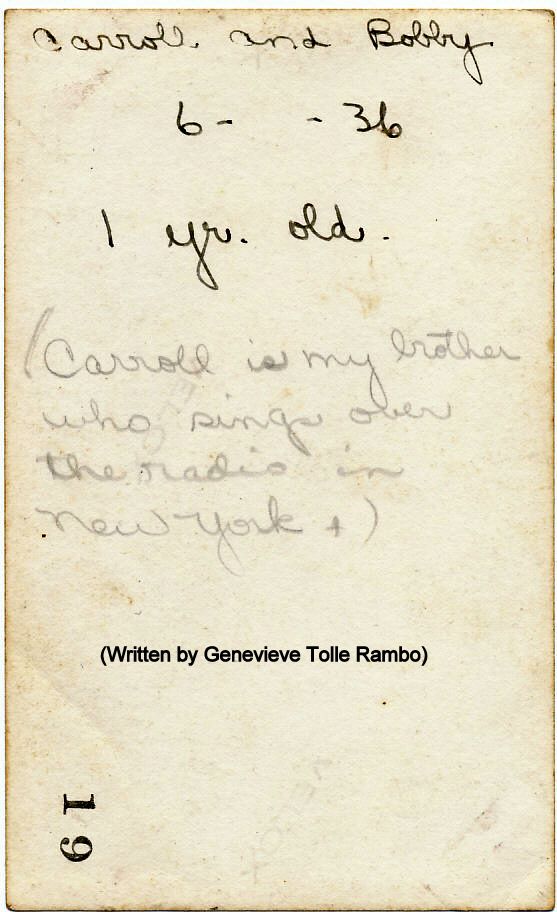 Carroll and Bobby
6- - 36
1 yr. old.
(Carroll is my brother
who sings over
the radio in
New York +)
(Written by Genevieve Tolle Rambo)
19